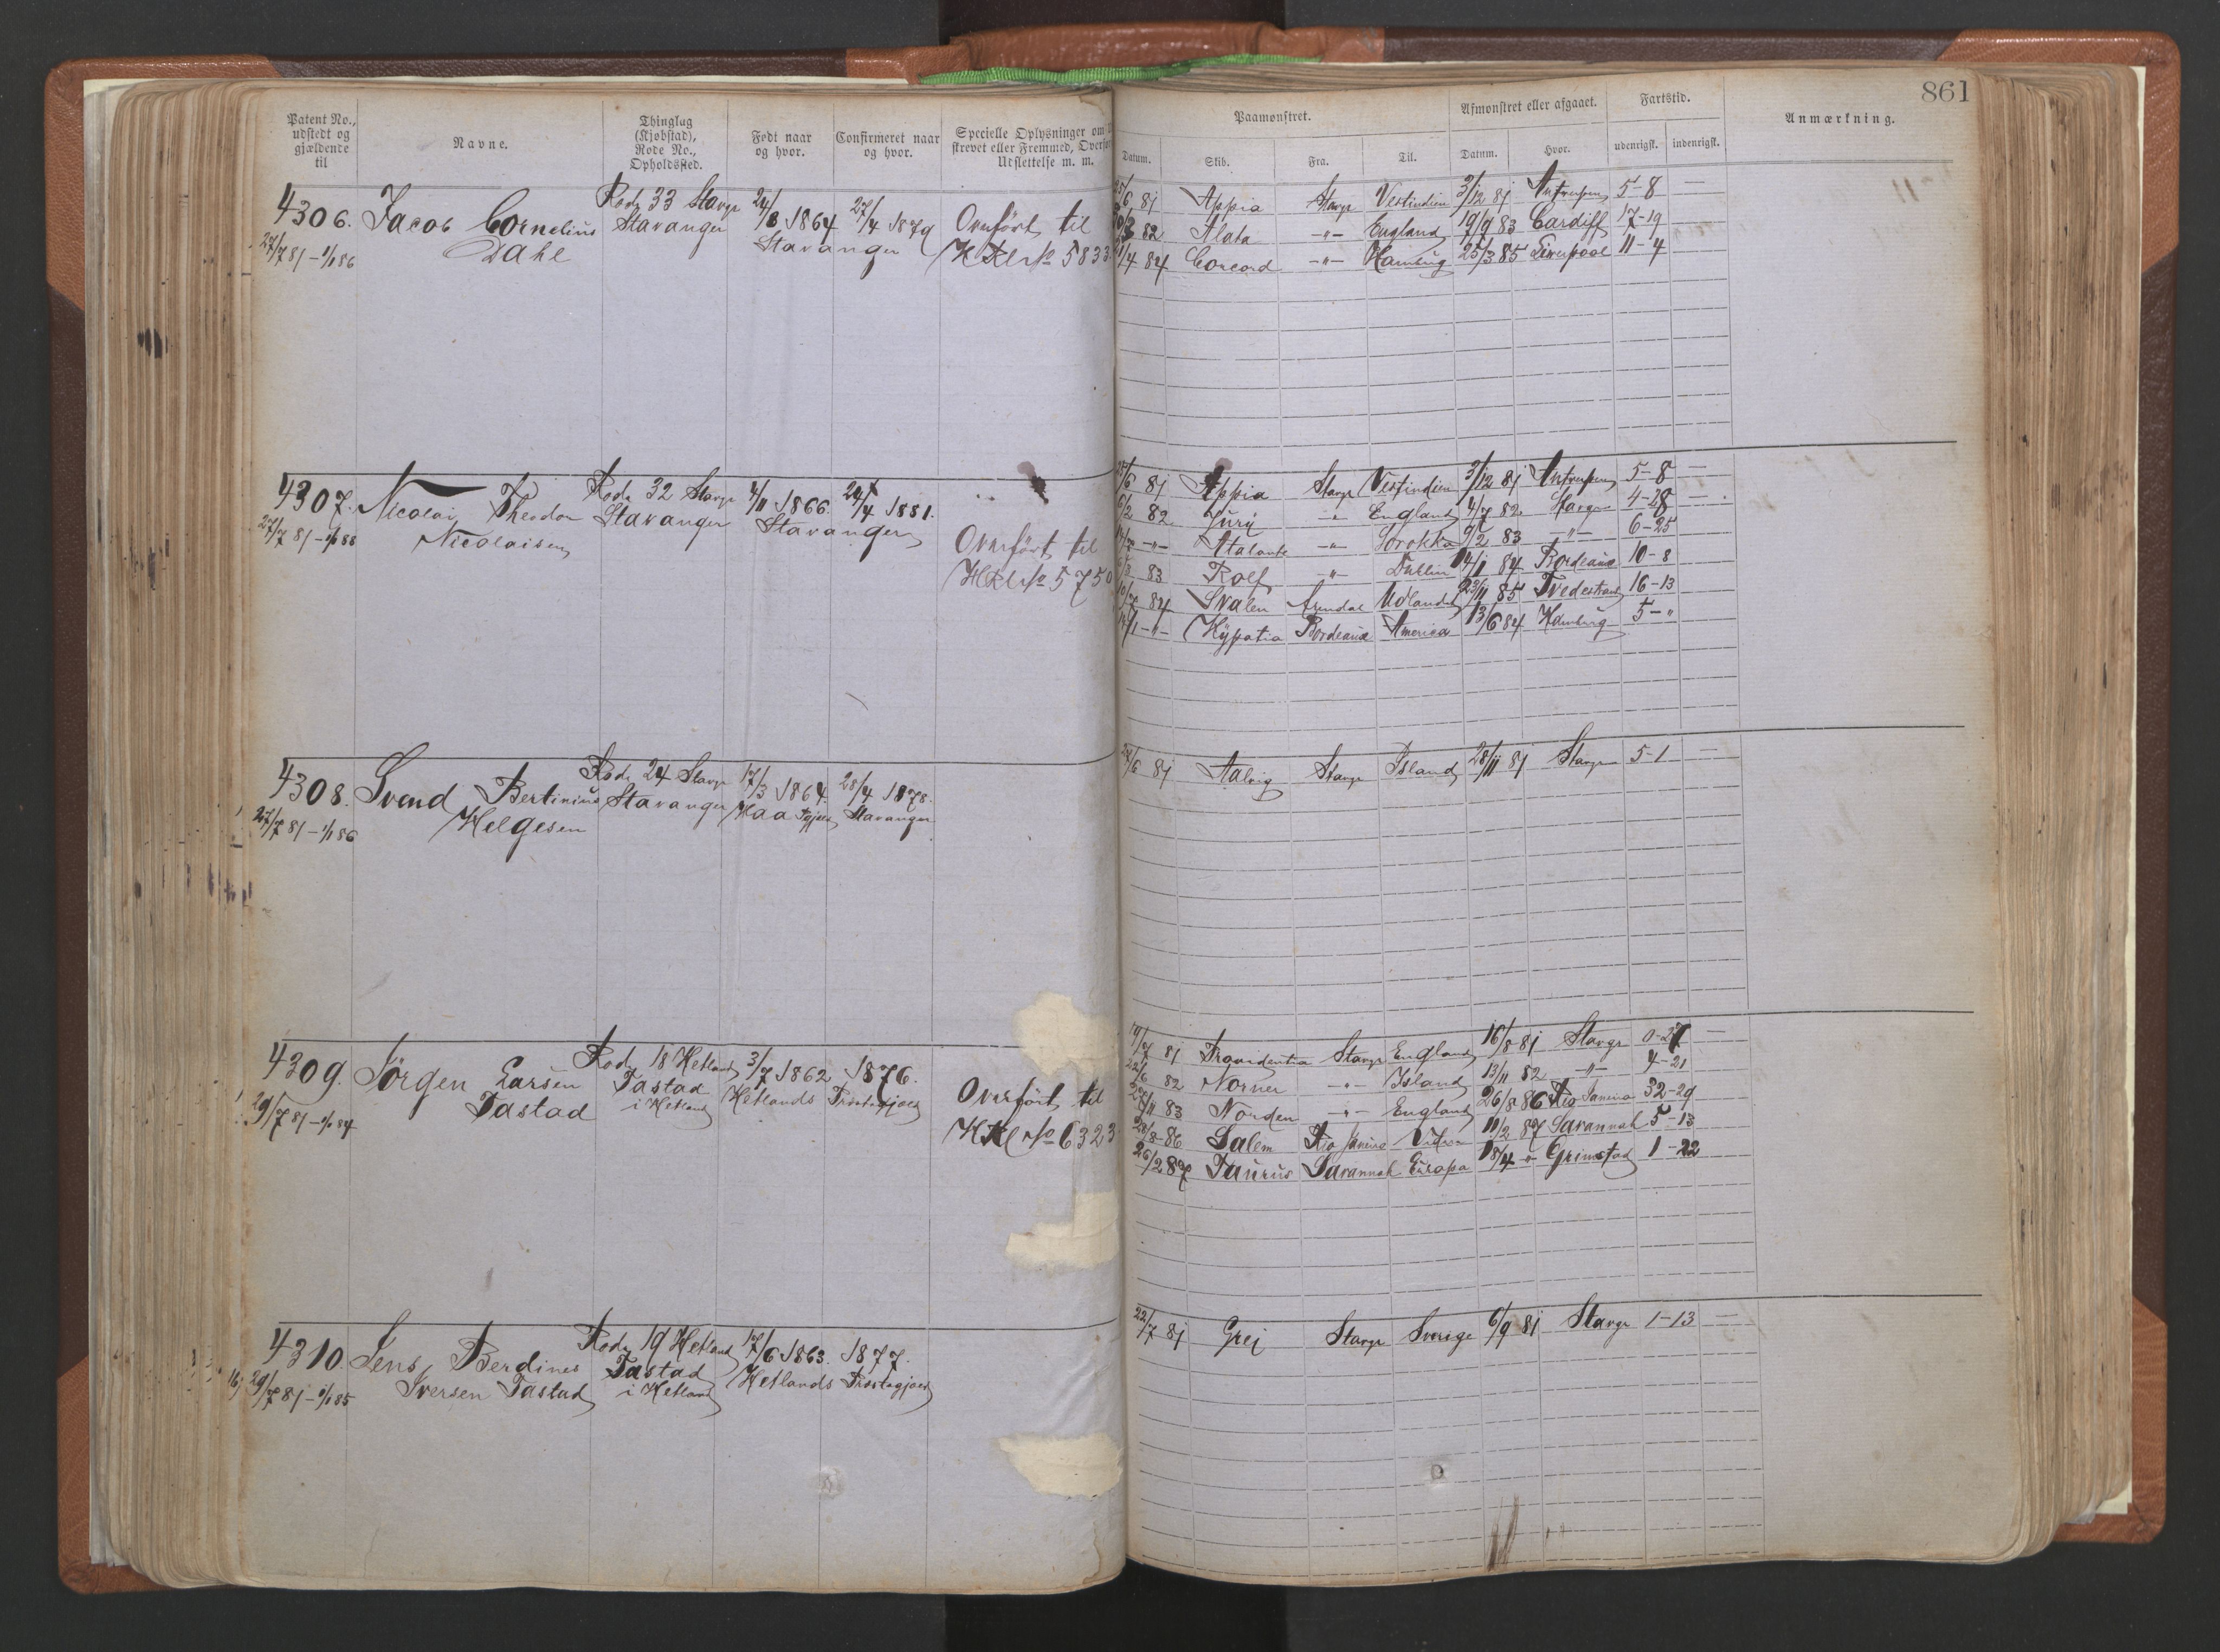 861
Patent No., udstedt og gjældende til
Navne.
Thinglag (Kjøbstad), Rode No., Opholdssted.
Født naar og hvor.
Confirmeret naar og hvor.
Specielle Oplysninger om
strevet eller Fremmed, Overfør
Udslettelse m. m.
Paamønstret.
Afmønstret eller afgaaet.
Fartstid.
Anmærkning.
Datum. Skib. Fra. Til. Datum. Hvor. udenrigsk. indenrigsk.
4306. Jacob Cornelius Rode 33 Stavgr 1864 27/4 1879 Overført til
27/7 81 - 1/1 86 Dahl Stavanger Stavanger HRl No 5833
6 81 Appia Stavgr Vestindien 3/12 81 Antverpen 5-8 —
82 Alata -"- England 19/9 83 Cardiff 17-19
/4 84 Concord -"- Hamburg 25/3 85 Liverpool 11-4
4307. Nicolai Theodor Rode 32 Stavgr 4/11 1866. 24/4 1881.
27/7 81 - 1/1 88 Nicolaisen Stavanger Stavanger
Overført til
HRl No 5750
/6 81 Appia Stavgr Vestindien 3/12 81 Antverpen 5-8 —
6/2 82 Jury -"- England 4/7 82 Stavgr 4-28 —
-"- Atalante -"- Sorokka 9/2 83 -"- 6-25
83 Rolf -"- Dublin 14/1 84 Bordeaux 10-8
84 Svalen Arendal Udlandet 23/11 85 Tvedestrand 16-13
-"- Hypatia Bordeaux America 13/6 84 Hamburg 5-"
4308. Svend Bertinius Rode 24 Stavgr 17/3 1864. 28/4 1878.
27/7 81 - 1/1 86 Helgesen Stavanger Haa Stavanger
/6 81 Aalvig Stavgr Island 28/11 81 Stavgr 5-1 —
4309. Jörgen Larsen Rode 18 Hetland 3/7 1862 1876.
29/7 81 - 1/1 84 Tastad Tastad i Hetland Hetlands Præstegjæld
Overført til
HRl No 6323
/7 81 Providentia Stavgr England 16/8 81 Stavgr 0-27 —
/6 82 Norner -"- Island 13/11 82 -"- 4-21
/11 83 Norden -"- England 26/8 86 Rio Janeiro 32-29
28/8-86 Salem Rio Janeiro 11/2 87 Savannah 5-13
26/2 87 Taurus Savannah Europa 18/4 " Grimstad 1-22
4310. Jens Berdines Rode 19 Hetland 17/6 1863. 1877.
29/7 81 - 1/1 85 Iversen Tastad Tastad i Hetland Hetlands Præstegjæld
22/7 81 Grej Stavgr Sverige 6/9 81 Stavgr 1-13 —